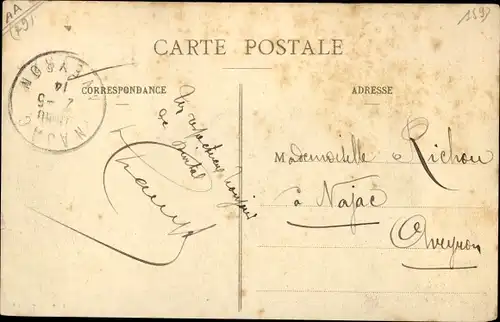 AA
(A9)
1597
CARTE POSTALE
CORRESPONDANCE
ADRESSE
NAJAC
7 - 5
14
AVEYRON
Un respectueux bonjour
de
Mademoiselle Richou
à Najac
Aveyron